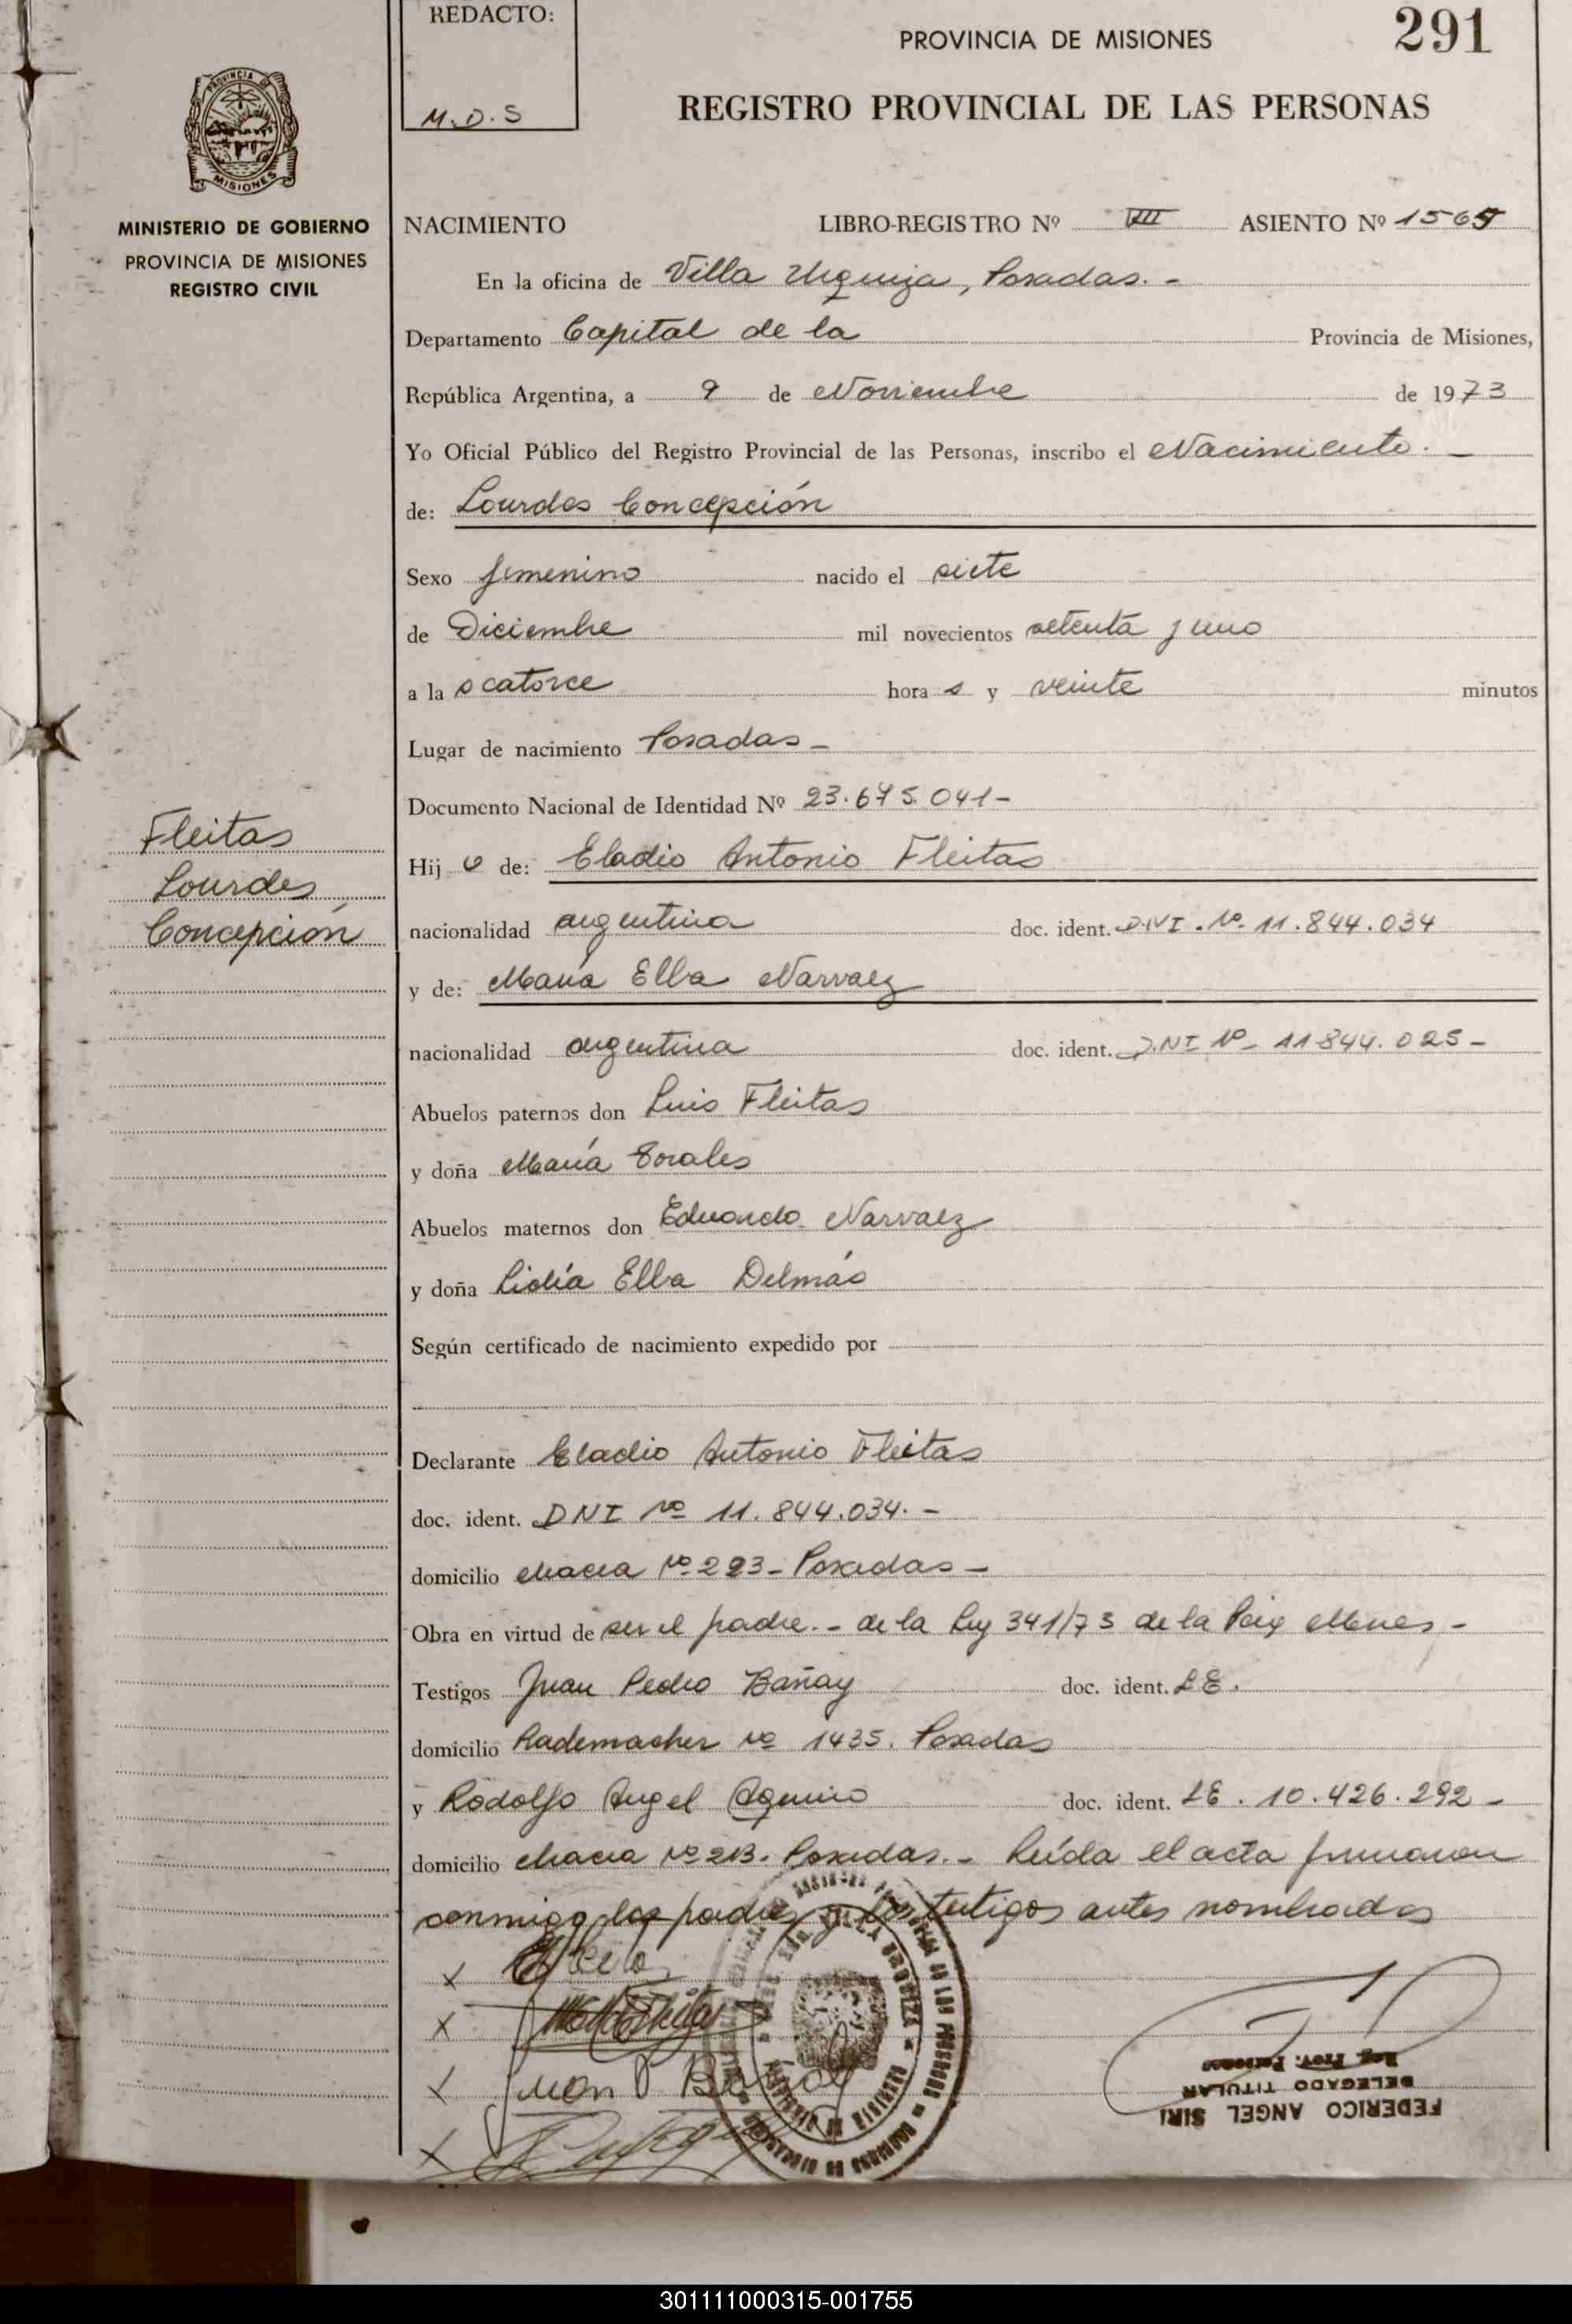 REDACTO:
M.D.S
PROVINCIA DE MISIONES
291
REGISTRO PROVINCIAL DE LAS PERSONAS
PROVINCIA DE
MISIONES
MINISTERIO DE GOBIERNO
PROVINCIA DE MISIONES
REGISTRO CIVIL
NACIMIENTO LIBRO-REGISTRO Nº VIII ASIENTO Nº 1565
En la oficina de Villa Urquiza, Posadas. -
Departamento Capital de la Provincia de Misiones,
República Argentina, a 9 de Noviembre de 1973
Yo Oficial Público del Registro Provincial de las Personas, inscribo el Nacimiento. -
de: Lourdes Concepción
Sexo femenino nacido el siete
de Diciembre mil novecientos setenta y uno
a la s catorce hora s y veinte minutos
Lugar de nacimiento Posadas -
Documento Nacional de Identidad Nº 23.675.041-
Fleitas
Lourdes
Concepción
Hij a de: Eladio Antonio Fleitas
nacionalidad argentina doc. ident. DNI. Nº. 11.844.034
y de: María Elba Narvaez
nacionalidad argentina doc. ident. D.NI Nº - 11844.025 -
Abuelos paternos don Luis Fleitas
y doña María
Abuelos maternos don Eduardo Narvaez
y doña Lidía Elba Delmás
Según certificado de nacimiento expedido por
Declarante Eladio Antonio Fleitas
doc. ident. DNI Nº 11.844.034. -
domicilio chacra Nº 223 - Posadas -
Obra en virtud de ser el padre. - de la Ley 341/73 de la
Testigos Juan Pedro Bañay doc. ident. LE.
domicilio Rademacher Nº 1435. Posadas
y Rodolfo Angel Aquino doc. ident. LE. 10.426.292 -
domicilio chacra Nº 213. Posadas. - Leída el acta firmaron
conmigo los padres y los testigos antes nombrados
Juan P Bañay
Reg. Prov. Personas
DELEGADO TITULAR
FEDERICO ANGEL SIRI
301111000315-001755